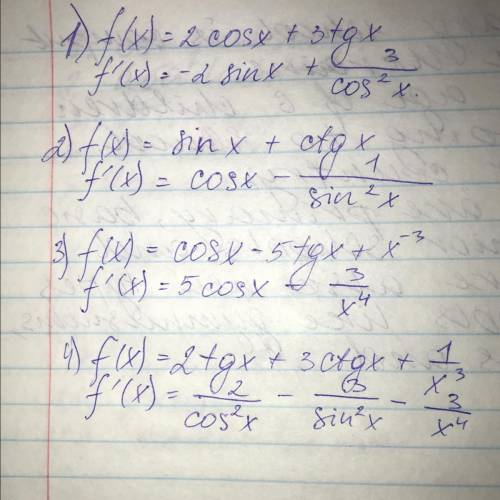 1) f(x) = 2 cosx + 3tgx
f'(x) = -2 sinx + 3/cos²x.
2) f(x) = sinx + ctgx
f'(x) = cosx - 1/sin²x
3) f(x) = cosx - 5tgx + x⁻³
f'(x) = 5cosx - 3/x⁴
4) f(x) = 2tgx + 3ctgx + 1/x³
f'(x) = 2/cos²x - 3/sin²x - 3/x⁴